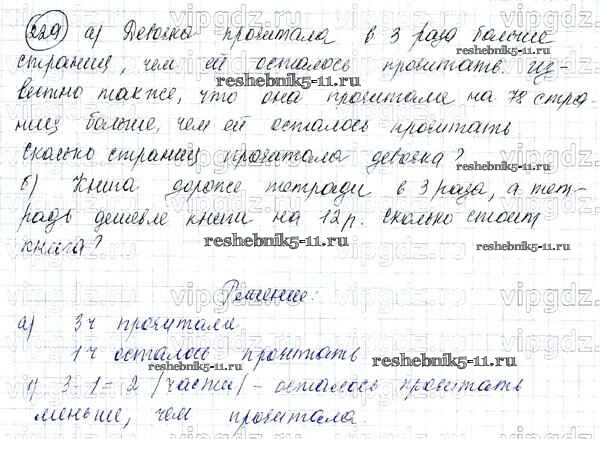 229 а) Девочка прочитала в 3 раза больше
страниц, чем ей осталось прочитать. Из-
вестно также, что она прочитала на 78 стра-
ниц больше, чем ей осталось прочитать
Сколько страниц прочитала девочка?
б) Книга дороже тетради в 3 раза, а тет-
радь дешевле книги на 12 р. Сколько стоит
книга?
Решение:
а) 3ч прочитали
1ч осталось прочитать
1) 3-1=2 (части) - осталось прочитать
меньше, чем прочитала.
vipgdz.
reshebnik5-11.ru
reshebnik5-11.ru
reshebnik5-11.ru
reshebnik5-11.ru
reshebnik5-11.ru